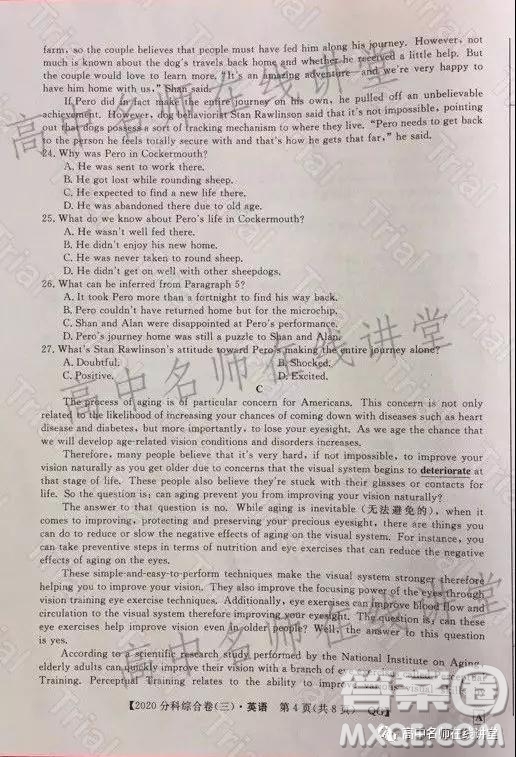 farm, so the couple believes that people must have fed him along his journey. However, not
much is known about the dog's travels back home and whether he received a little help. But
the couple would love to learn more. "It's an amazing adventure and we're very happy to
have him home with us," Shan said.
If Pero did in fact make the entire journey on his own, he pulled off an unbelievable
achievement. However, dog behaviorist Stan Rawlinson said that it's not impossible, pointing
out that dogs possess a sort of tracking mechanism to where they live. "Pero needs to get back
to the person he feels totally secure with and that's how he gets that far," he said.
24. Why was Pero in Cockermouth?
A. He was sent to work there.
B. He got lost while rounding sheep.
C. He expected to find a new life there.
D. He was abandoned there due to old age.
25. What do we know about Pero's life in Cockermouth?
A. He wasn't well fed there.
B. He didn't enjoy his new home.
C. He was never taken to round sheep.
D. He didn't get on well with other sheepdogs.
26. What can be inferred from Paragraph 5?
A. It took Pero more than a fortnight to find his way back.
B. Pero couldn't have returned home but for the microchip.
C. Shan and Alan were disappointed at Pero's performance.
D. Pero's journey home was still a puzzle to Shan and Alan.
27. What's Stan Rawlinson's attitude toward Pero's making the entire journey alone?
A. Doubtful. B. Shocked.
C. Positive. D. Excited.
C
The process of aging is of particular concern for Americans. This concern is not only
related to the likelihood of increasing your chances of coming down with diseases such as heart
disease and diabetes, but more importantly, to lose your eyesight. As we age the chance that
we will develop age-related vision conditions and disorders increases.
Therefore, many people believe that it's very hard, if not impossible, to improve your
vision naturally as you get older due to concerns that the visual system begins to deteriorate at
that stage of life. These people also believe they're stuck with their glasses or contacts for
life. So the question is: can aging prevent you from improving your vision naturally?
The answer to that question is no. While aging is inevitable (无法避免的), when it
comes to improving, protecting and preserving your precious eyesight, there are things you
can do to reduce or slow the negative effects of aging on the visual system. For instance, you
can take preventive steps in terms of nutrition and eye exercises that can reduce the negative
effects of aging on the eyes.
These simple-and-easy-to-perform techniques make the visual system stronger therefore
helping you to improve your vision. They also improve the focusing power of the eyes through
vision training eye exercise techniques. Additionally, eye exercises can improve blood flow and
circulation to the visual system therefore improving your eyesight. The question is: can these
eye exercises help improve vision even in older people? Well, the answer to this question
is yes.
According to a scientific research study performed by the National Institute on Aging
elderly adults can quickly improve their vision with a branch of eye
Training. Perceptual Training relates to the ability to
【2020分科综合卷(三)·英语 第4页(共8页) QG】
高中名师在线讲堂
高中名师在线讲堂
高中名师在线讲堂
高中名师在线讲堂
Trial
答案圈